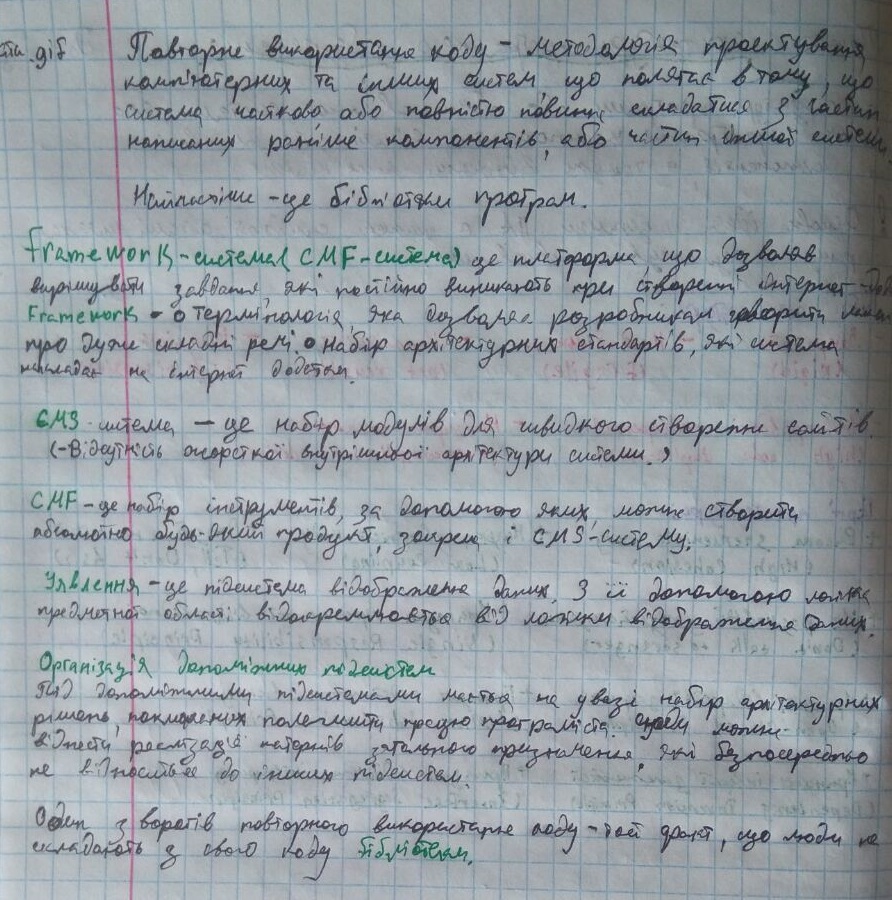 Повторне використання коду - методологія проектування
комп'ютерних та інших систем, що полягає в тому, що
система частково або повністю повинна складатися з частин
написаних раніше компонентів, або частин іншої системи
Найчастіше - це бібліотеки програм.
Framework - система (CMF-система) це платформа, що дозволяє
вирішувати завдання, які постійно виникають при створенні інтернет-дод
Framework - термінологія, яка дозволяє розробникам говорити
про дуже складні речі набір архітектурних стандартів, які система
накладає на інтернет додатки.
CMS система — це набір модулів для швидкого створення сайтів.
(- Відсутність жорсткої внутрішньої архітектури системи.)
CMF - це набір інструментів, за допомогою яких, можна створити
абсолютно будь-який продукт, зокрема і CMS-систему.
Уявлення - це підсистема відображення даних. З її допомогою логіка
предметної області відокремлюється від логіки відображення даних.
Організація допоміжних підсистем
Під допоміжними підсистемами мається на увазі набір архітектурних
рішень, покликаних полегшити працю програміста. можна
віднести реалізація патернів загального призначення, які безпосередньо
не відносяться до інших підсистем.
Один з ворогів повторного використання коду - той факт, що люди не
складають з свого коду бібліотеки.